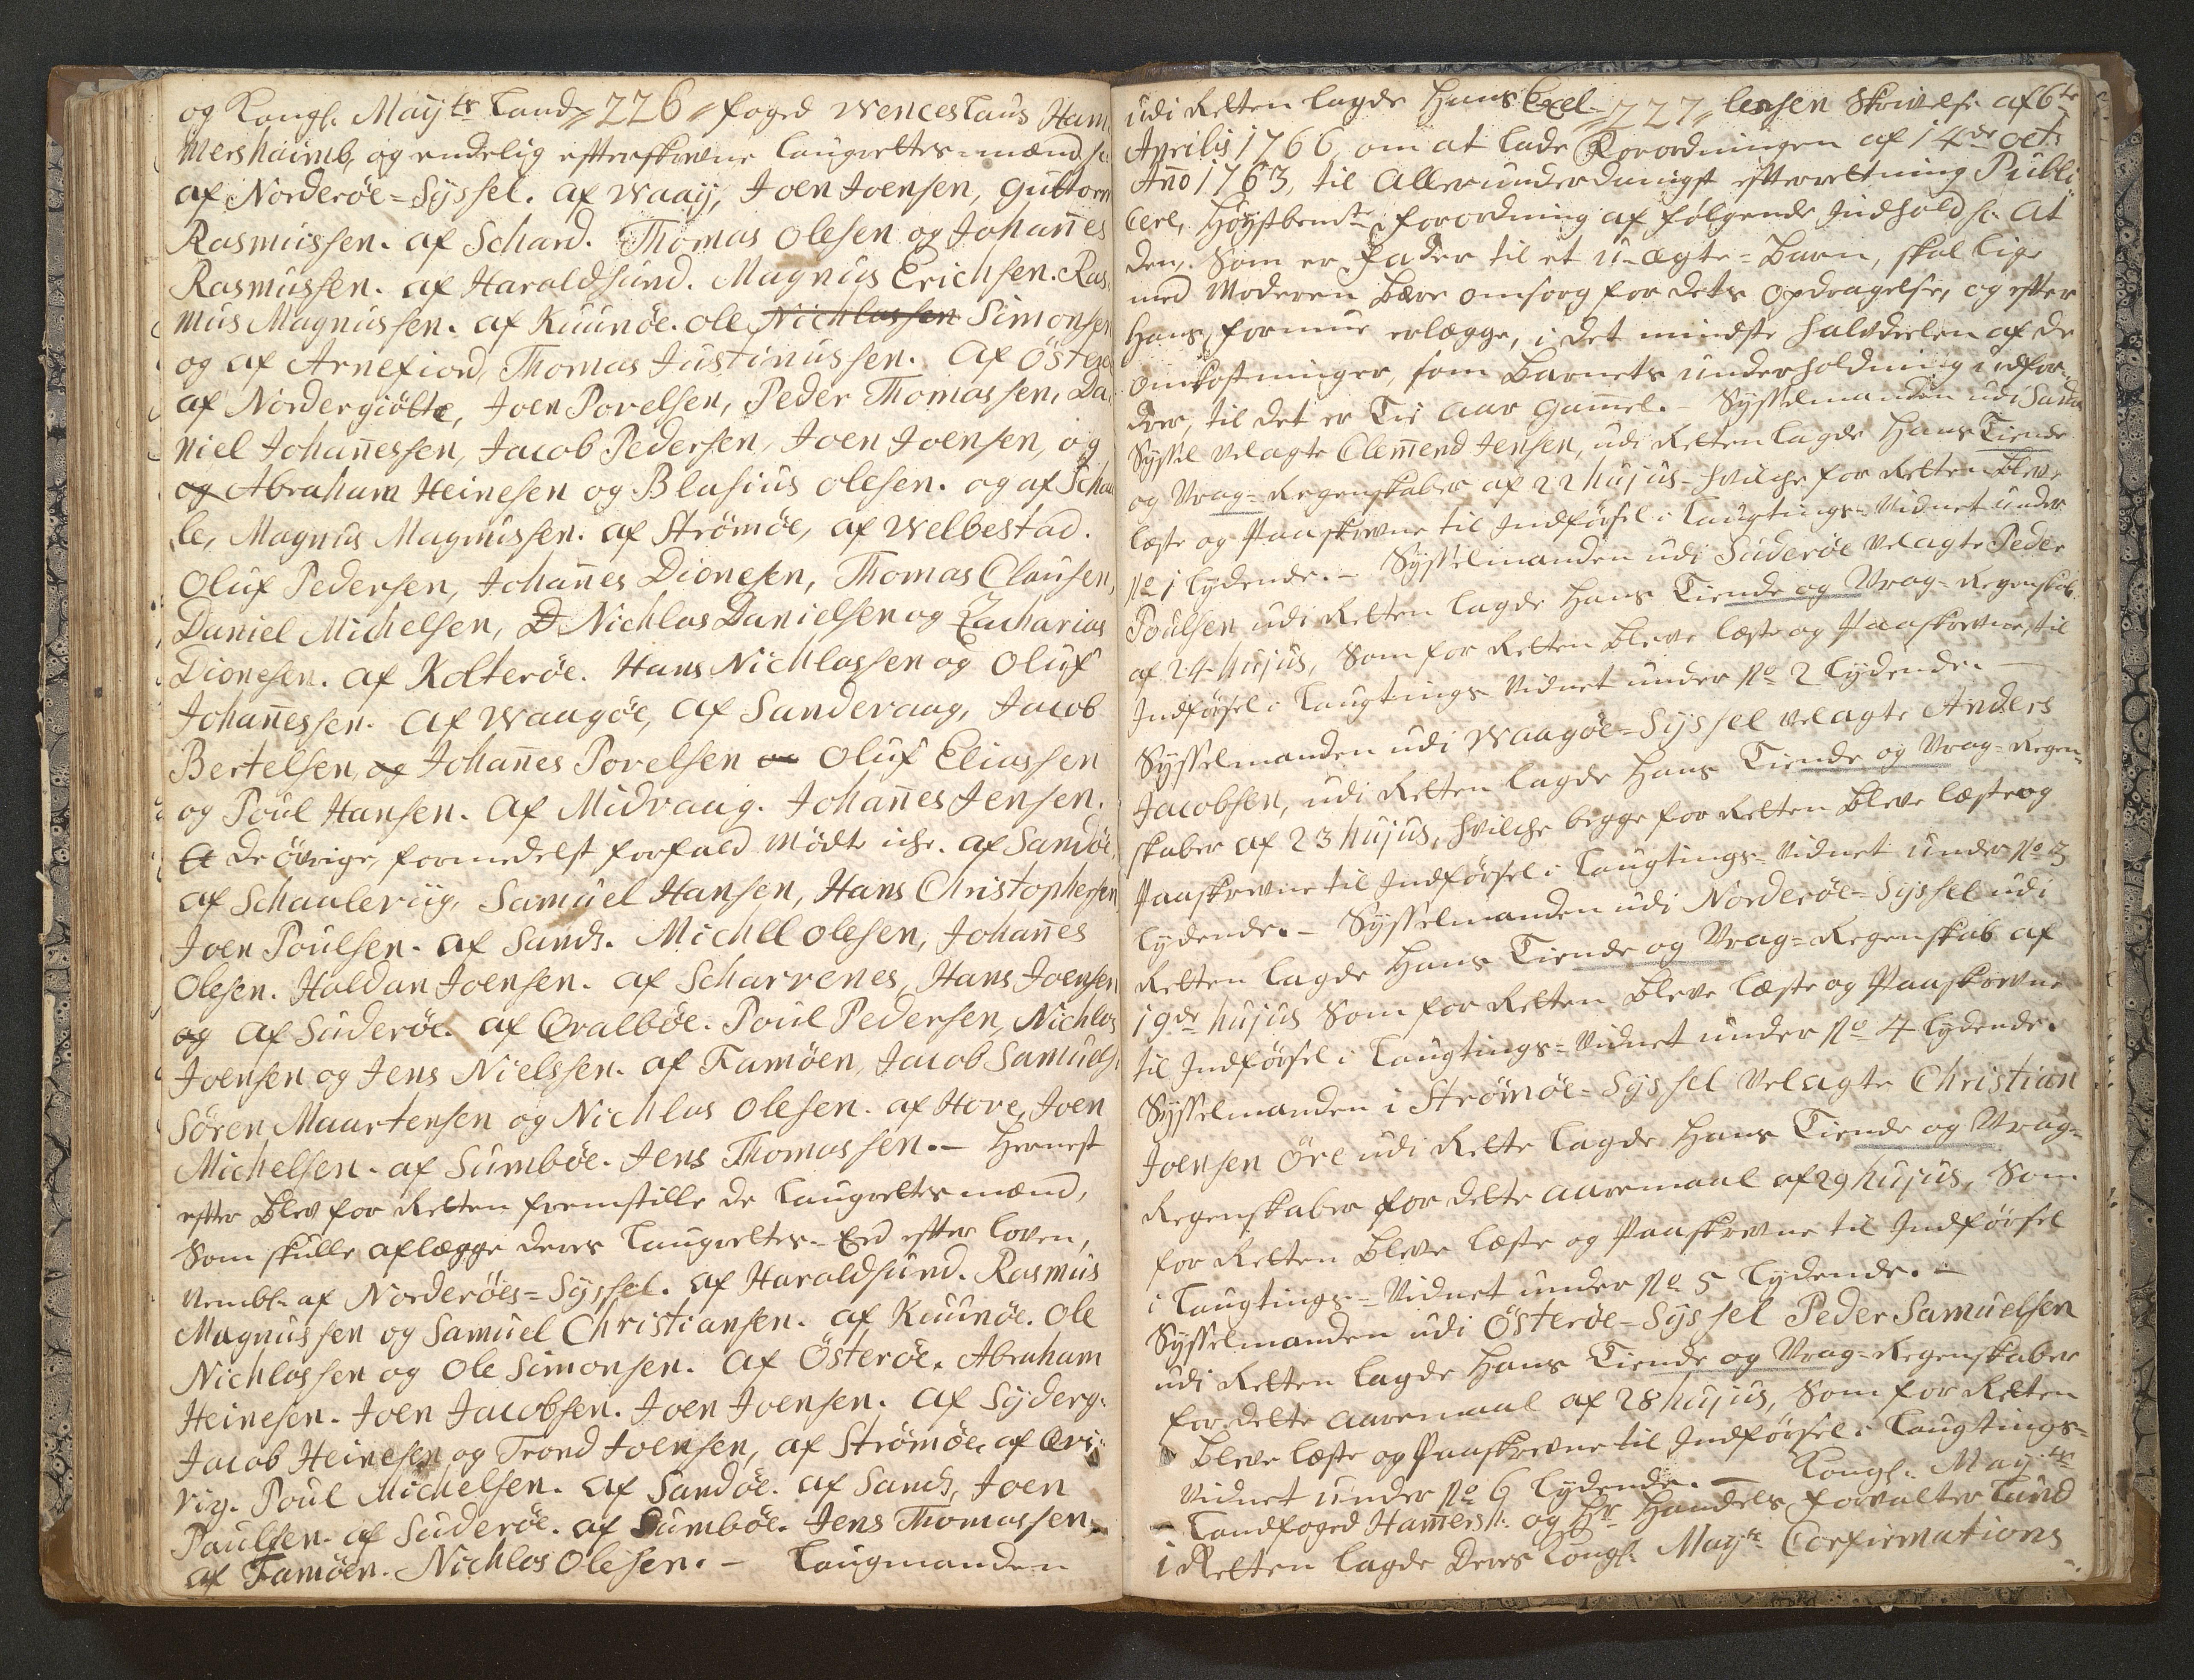 og Kongl. May:ts Land- 226 foged Wenceslaus Ham
mershaimb, og endelig efterskrevne Laugrettes-mænd sc:
af Norderøe-Syssel. af Waay, Joen Joensen, Guttorm
Rasmussen. af Schard. Thomas Olesen og Johañes
Rasmussen. af Haraldsund. Magnus Erichsen. Ras,
mus Magnussen. af Kuunöe. Ole Nichlassen Simonsen
og af Arnefiord, Thomas Justinussen. Af Österøe
af Nordergiøtte, Joen Povelsen, Peder Thomassen, Da,
niel Johañessen, Jacob Pedersen, Joen Joensen, og
og Abraham Heinesen og Blasius Olesen. og af Scha
le, Magnus Magnussen. af Strömöe, af Welbestad.
Oluf Pedersen, Johañes Dionesen, Thomas Clausen,
Daniel Michelsen, D Nichlas Danielsen og Zacharias
Dionesen. af Kolterøe. Hans Nichlassen og Oluf
Johañessen. Af Waagöe, af Sandevaag, Jacob
Bertelsen, og Johañes Povelsen og Oluf Eliassen
og Poul Hansen. Af Midvaag. Johañes Jensen.
A De övrige, formedelst forfald mödte iche. af Sandöe.
af Schaaleviig, Samuel Hansen, Hans Christophersen
Joen Poulsen. af Sands. Michell Olesen, Johañes
Olesen. Haldan Joensen. af Scharvenes, Hans Joensen
og af Suderöe. af Qvalböe. Poul Pedersen, Nichlas
Joensen og Jens Nielssen. af Famöen, Jacob Samuels:
Sören Maartensen og Nichlas Olesen. af Hove, Joen
Michelsen. af Sumböe. Jens Thomassen. – Hernest
efter blev for Retten fremstille de Laugrettesmænd,
Som skulle aflægge deres Laugrettes-Eed efter Loven,
nembl. af Norderöes-Syssel. af Haraldsund. Rasmus
Magnussen og Samuel Christiansen. af Kuunöe. Ole
Nichlassen og Ole Simonsen. Af Österöe. Abraham
Heinesen. Joen Jacobsen. Joen Joensen. af Syderg:
Jacob Heinesen og Trond Joensen, af Strömöe, af Qvi,
vig. Poul Michelsen. af Sandöe. af Sands, Joen
Paulsen. af Suderöe. af Sumböe. Jens Thomassen.
af Famöen. Nichlas Olesen. – Laugmanden
udi Retten lagde Hans Excel- 227 lensen Skrivelse af 6te
Aprilis 1766, om at lade Forordningen af 14de oct:
Año 1763, til Allerunderdanigst efterrettning Publi
cere, Høystbemte forordning af følgende Indhold sc. At
den, som er Fader til et u-ægte-Barn, skal lige
med Moderen bære omsorg for dets Opdragelse, og efter
Hans formue erlægge, i det mindste halvdeelen af de
omkostninger, som Barnets underholdning udfor-
drer, til det er Tie Aar gamel. – Sysselmanden udi Sandøe
Syssel Velagte Clemend Jensen, udi Retten lagde Hans Tiende
og Vrag-Regenskaber af 22 hujus, hvilche for Retten bleve
læste og Paaskrevne til Indførsel i Laugtings-Vidnet under
No 1 lydende. – Sysselmanden udi Suderöe Velagte Peder
Poulsen udi Retten lagde Hans Tiende og Vrag-Regenskab
af 24 hujus, Som for Retten bleve læste og Paaskrevne, til
Indførsel i Laugtings Vidnet under No 2 lydende. –
Sysselmanden udi Waagöe-Syssel Velagte Anders
Jacobsen, udi Retten lagde Hans Tiende og Vrag-Regen-
skaber af 23 hujus, hvilche begge for Retten bleve læste og
Paaskrevne til Indførsel i Laugtings-Vidnet under No 3
lydende. – Sysselmanden udi Norderöe-Syssel udi
Retten lagde Hans Tiende og Vrag-Regenskab af
19de hujus Som for Retten bleve læste og Paaskrevne
til Indførsel i Laugtings-Vidnet under No 4 lydende.
Sysselmanden i Strömöe-Syssel Velagte Christian
Joensen Öre udi Rette lagde Hans Tiende og Vrag-
Regenskaber for dette Aaremaal af 29 hujus, Som
for Retten bleve læste og Paaskrevne til Indførsel
i Laugtings-Vidnet under No 5 lydende. –
Sysselmanden udi Österöe-Syssel Peder Samuelsen
udi Retten lagde Hans Tiende og Vrag-Regenskaber
for dette Aaremaal af 28 hujus, Som for Retten
bleve læste og Paaskrevne til Indførsel i Laugtings-
Vidnet under No 6 lydende. – Kongl. May:ts
– Landfoged Hamersh. og Hr Handels forvalter Lund
i Retten lagde Deres Kongl. May:ts Confirmations